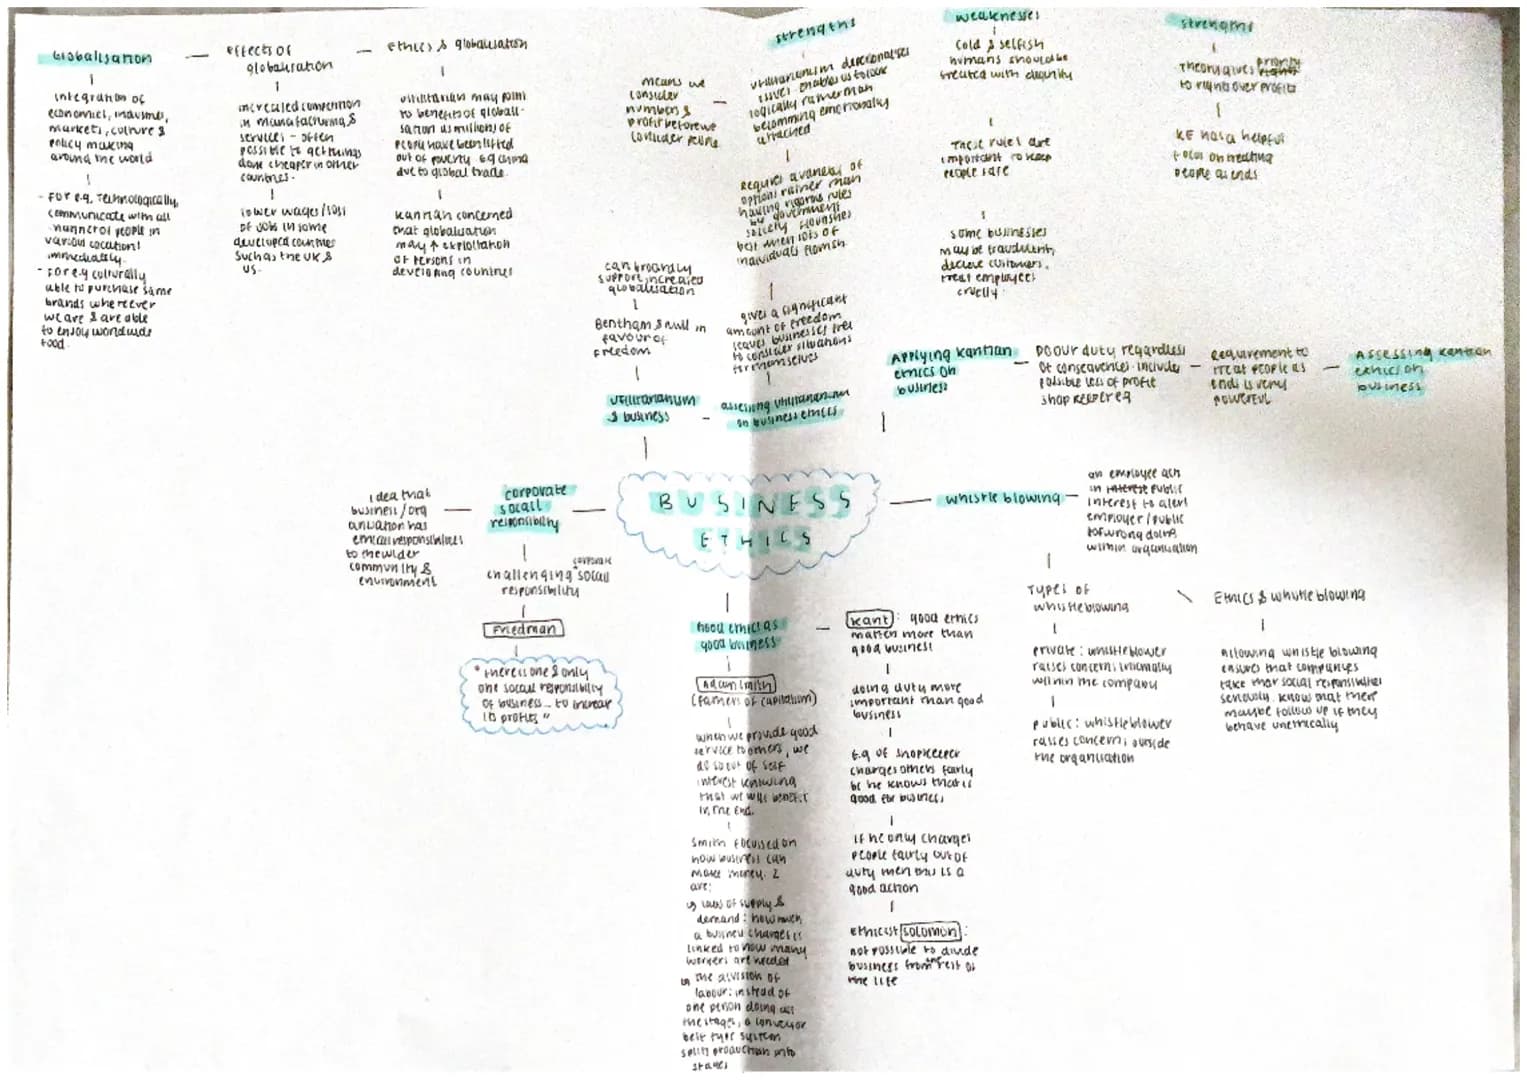 Globalisation
integration of
economies, industries,
markets, culture &
policy making
around the world
- for e.g. technologically,
communicate with all
manner of people in
various locations
immediately.
- for e.g culturally
able to purchase same
brands whereever
we are & are able
to enjoy worldwide
food.
effects of
globalisation
increased competition
in manufacturing &
services - often
possible to get things
done cheaper in other
countries.
lower wages/loss
of jobs in some
developed countries
such as the UK &
US.
ethics & globalisation
utilitarian may point
to benefits of globali-
sation as millions of
people have been lifted
out of poverty eg china
due to global trade.
kantian concerned
that globalisation
may ↑ exploitation
of persons in
developing countries
means we
consider
numbers &
profit before we
consider people
strengths
utilitarianism depersonalises
issues. enables us to look
logically rather than
becomming emotionally
attached
Requires a variety of
options rather than
having rigorous rules
by government
society flourishes
best when lots of
individuals flourish.
gives a significant
amount of freedom
leaves businesses free
to consider situations
for themselves
assessing utilitarianism
on business ethics
can broardly
support increased
globalisation
Bentham & mill in
favour of
freedom
utilitarianism
& business
weaknesses
cold & selfish
humans should be
treated with dignity
These rules are
important to keep
people safe
some businesses
may be fraudulent,
decieve customers,
treat employees
cruelly.
strengths
Theory gives priority
to rights over profits
KE has a helpful
focus on treating
people as ends
Applying kantian
ethics on
business
DO our duty regardless
of consequences. includes
possible loss of profit
shopkeeper eg
Requirement to
treat people as
ends is very
powerful
Assessing kantian
ethics on
business
BUSINESS
ETHICS
corporate
socail
responsibility
idea that
business/org
anisation has
ethical responsibilities
to the wider
community &
environment
challenging corporate socail
responsibility
Friedman
"there is one & only
one socail responsibility
of business... to increase
its profits"
whistle blowing
an employee acts
in interest public
interest to alert
employer/public
of wrong doing
within organisation
Types of
whistleblowing
private: whistleblower
raises concerns internally
within the company
public: whistleblower
raises concerns outside
the organisation
Ethics & whistle blowing
Allowing whistle blowing
ensures that companies
take their social responsibilities
seriously. know that there
maybe follow up if they
behave unethically
Good ethics as
good business
Adam Smith
(fathers of capitalism)
when we provide good
service to others, we
do so out of self
interest knowing
that we will benefit
in the end.
Smith focussed on
how business can
make money. 2
are:
↳ laws of supply &
demand: how much
a business charges is
linked to how many
workers are needed
↳ the division of
labour: instead of
one person doing all
the stages, a conveyor
belt type system
splits production into
stages
Kant: good ethics
matters more than
good business
doing duty more
important than good
business
E.g of shopkeeper
charges others fairly
bc he knows that is
good for business
If he only charges
people fairly out of
duty then this is a
good action
ethicist Solomon:
not possible to divide
business from the rest of
the life